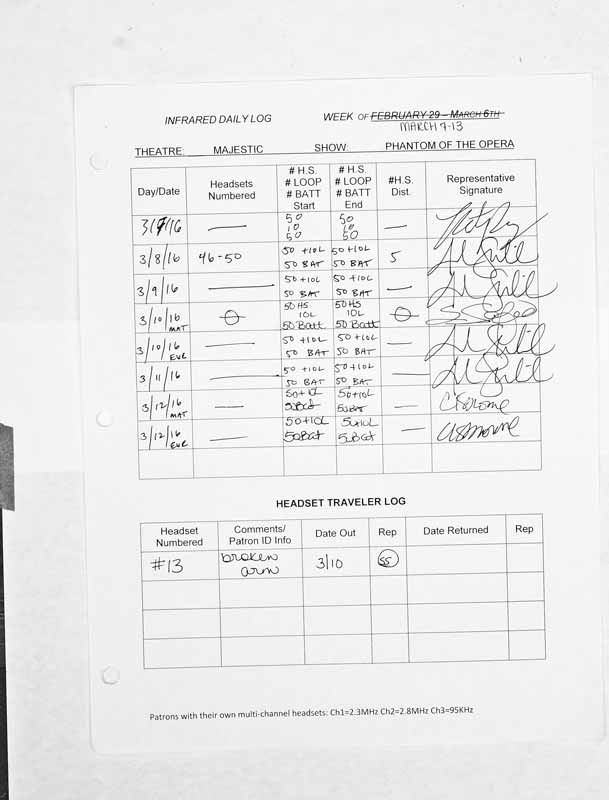 INFRARED DAILY LOG WEEK OF FEBRUARY 29 – MARCH 6TH
MARCH 7-13
THEATRE: MAJESTIC SHOW: PHANTOM OF THE OPERA
Day/Date Headsets Numbered # H.S. # LOOP # BATT Start # H.S. # LOOP # BATT End #H.S. Dist. Representative Signature
3/7/16 — 50 10 50 50 10 50 —
3/8/16 46-50 50 +10L 50 BAT 50 +10L 50 BAT 5
3/9/16 — 50 +10L 50 BAT 50 +10L 50 BAT —
3/10/16 MAT 50 HS 10L 50 Batt 50 HS 10L 50 Batt
3/10/16 EVE — 50 +10L 50 BAT 50 +10L 50 BAT —
3/11/16 — 50 +10L 50 BAT 50 +10L 50 BAT —
3/12/16 MAT — 50+10L 50Bat 50+10L 50Bat —
3/12/16 EVE — 50+10L 50Bat 50+10L 50Bat —
HEADSET TRAVELER LOG
Headset Numbered Comments/ Patron ID Info Date Out Rep Date Returned Rep
#13 broken arm 3/10 SS
Patrons with their own multi-channel headsets: Ch1=2.3MHz Ch2=2.8MHz Ch3=95KHz